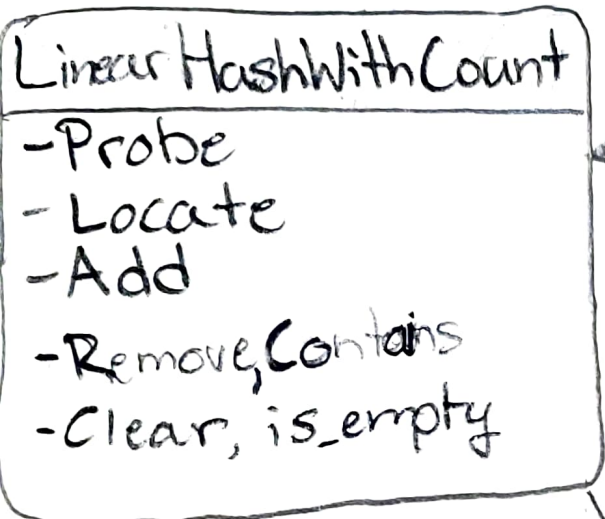 LinearHashWithCount
-Probe
-Locate
-Add
-Remove, Contains
-Clear, is_empty